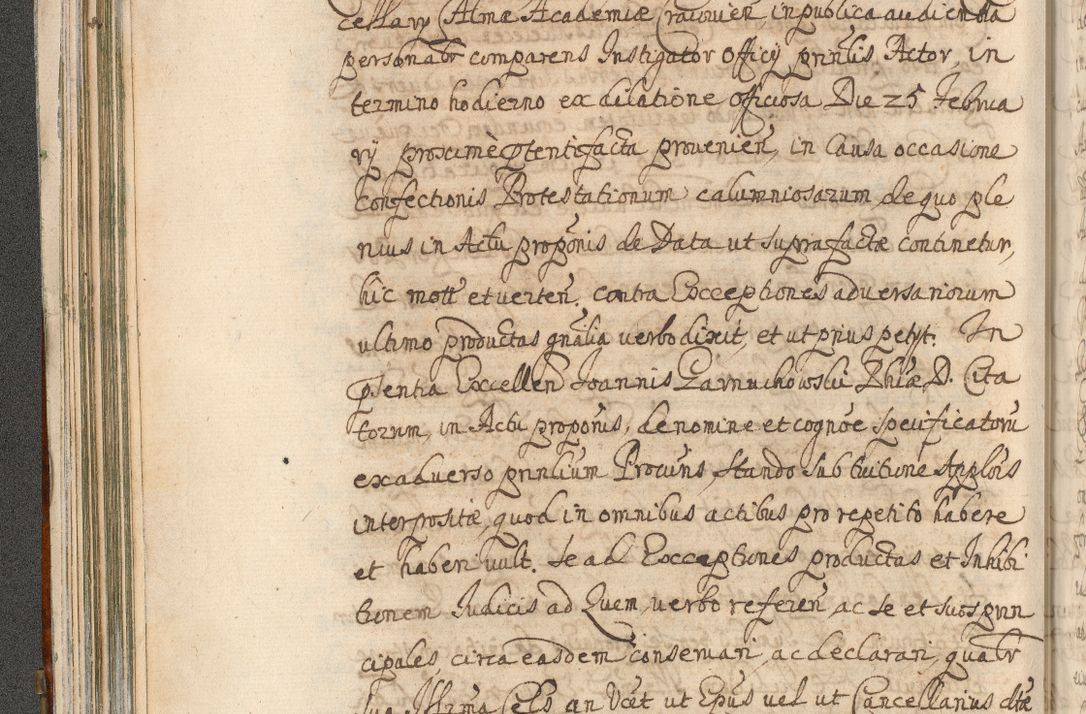 cellary Almæ Academiæ Cracovien in publica audientia
personalr comparens Instigator Officij prinlis Actor, in
termino hodierno ex dilatione officiosa Die 25 Februa
rij proxime ptentis facta provenien, in Causa occasione
confectionis Protestationum calumniosarum, de quo ple
nius in Actu proponis de Data ut supra factæ continetur,
hic mott et verten, contra Exceptiones adversariorum
ultimo productas gnalia verbo dixit, et ut prius petyt. In
ptentia Excellen Joannis Zarnuchowski Phiæ D. Cita
torum, in Actu proponis, de nomine et cognoe specificatoru
ex adverso prinlium Procuris, stando sub tuitione Applonis
interpositæ, quod in omnibus actibus pro repetito habere
et haberi vult. Se ad Exceptiones productas et Inhibi
tionem Judicis ad Quem, verbo referen ac se et suos prin
cipales, circa easdem conservari, ac declarari, qualr
sua Illrma Cels an Vcet ut Epus vel ut Cancellarius dtæ